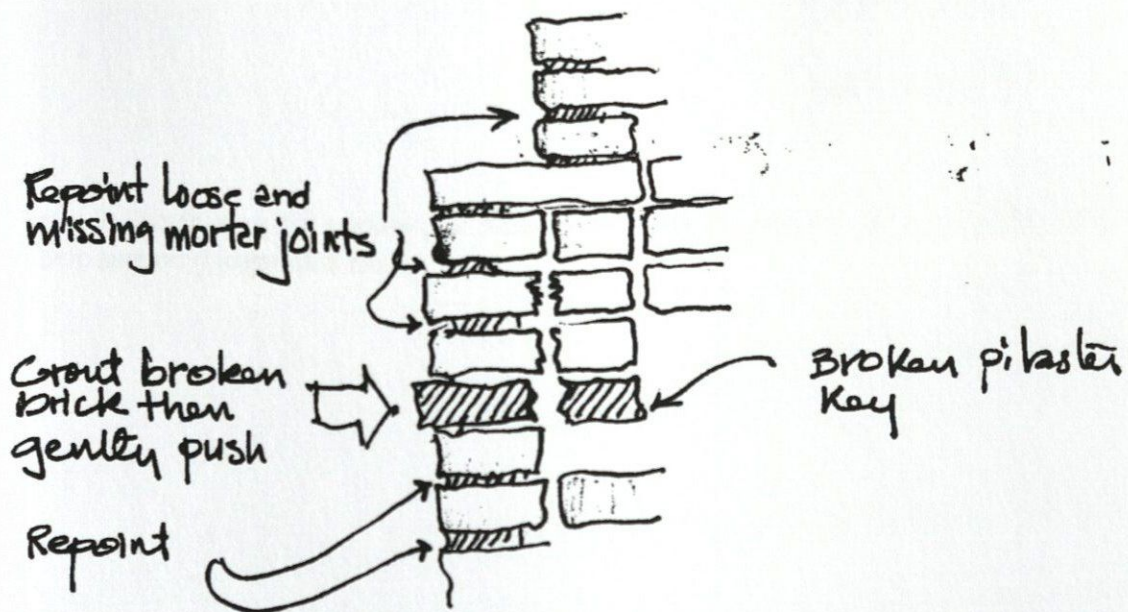 Repoint loose and
missing morter joints
Grout broken
brick then
gently push
Repoint
Broken pilaster
Key